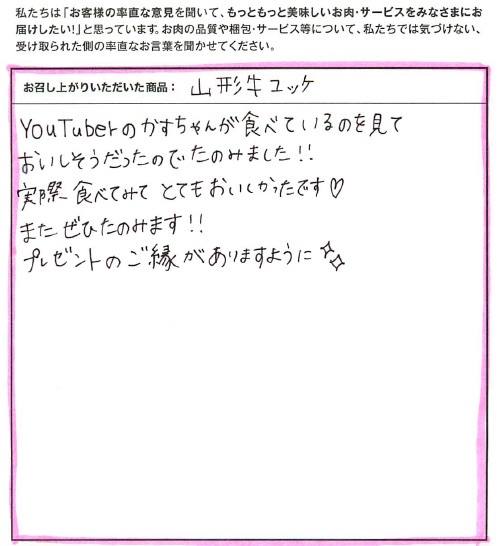 私たちは「お客様の率直な意見を聞いて、もっともっと美味しいお肉・サービスをみなさまにお
届けしたい!」と思っています。お肉の品質や梱包・サービス等について、私たちでは気づけない、
受け取られた側の率直なお言葉を聞かせてください。
お召し上がりいただいた商品： 山形牛ユッケ
YouTuberのかすちゃんが食べているのを見て
おいしそうだったのでたのみました!!
実際食べてみてとてもおいしかったです♡
またぜひたのみます!!
プレゼントのご縁がありますように✨